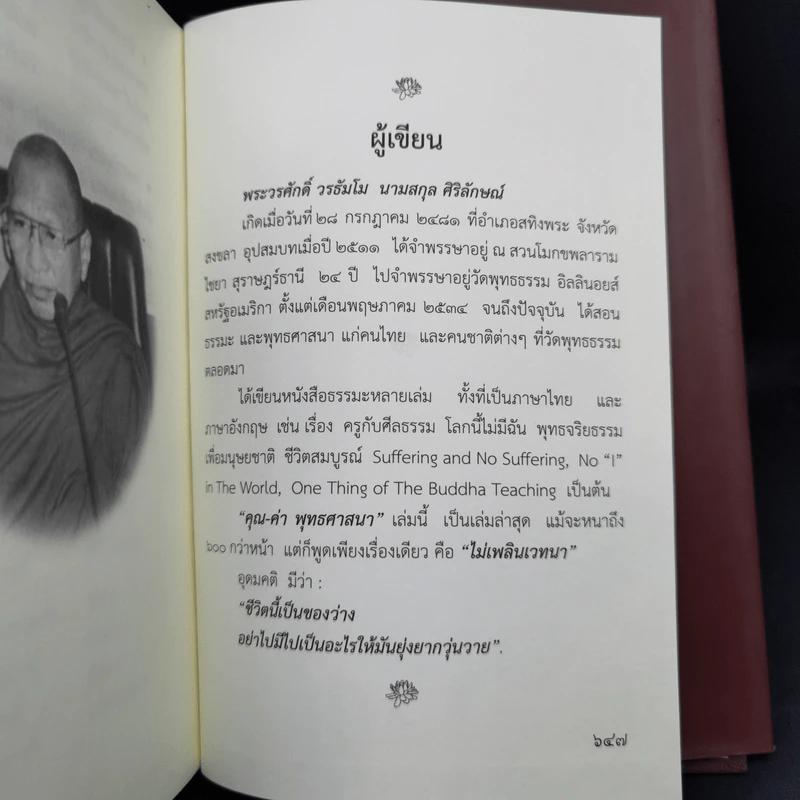 ผู้เขียน
พระวรศักดิ์ วรธัมโม นามสกุล ศิริลักษณ์
เกิดเมื่อวันที่ ๒๘ กรกฎาคม ๒๔๘๑ ที่อำเภอสทิงพระ จังหวัด
สงขลา อุปสมบทเมื่อปี ๒๕๑๑ ได้จำพรรษาอยู่ ณ สวนโมกขพลาราม
ไชยา สุราษฎร์ธานี ๒๔ ปี ไปจำพรรษาอยู่วัดพุทธธรรม อิลลินอยส์
สหรัฐอเมริกา ตั้งแต่เดือนพฤษภาคม ๒๕๓๔ จนถึงปัจจุบัน ได้สอน
ธรรมะ และพุทธศาสนา แก่คนไทย และคนชาติต่างๆ ที่วัดพุทธธรรม
ตลอดมา
ได้เขียนหนังสือธรรมะหลายเล่ม ทั้งที่เป็นภาษาไทย และ
ภาษาอังกฤษ เช่น เรื่อง ครูกับศีลธรรม โลกนี้ไม่มีฉัน พุทธจริยธรรม
เพื่อมนุษยชาติ ชีวิตสมบูรณ์ Suffering and No Suffering, No “I”
in The World, One Thing of The Buddha Teaching เป็นต้น
“คุณ-ค่า พุทธศาสนา” เล่มนี้ เป็นเล่มล่าสุด แม้จะหนาถึง
๖๐๐ กว่าหน้า แต่ก็พูดเพียงเรื่องเดียว คือ “ไม่เพลินเวทนา”
อุดมคติ มีว่า :
“ชีวิตนี้เป็นของว่าง
อย่าไปมีไปเป็นอะไรให้มันยุ่งยากวุ่นวาย”.
๖๔๗